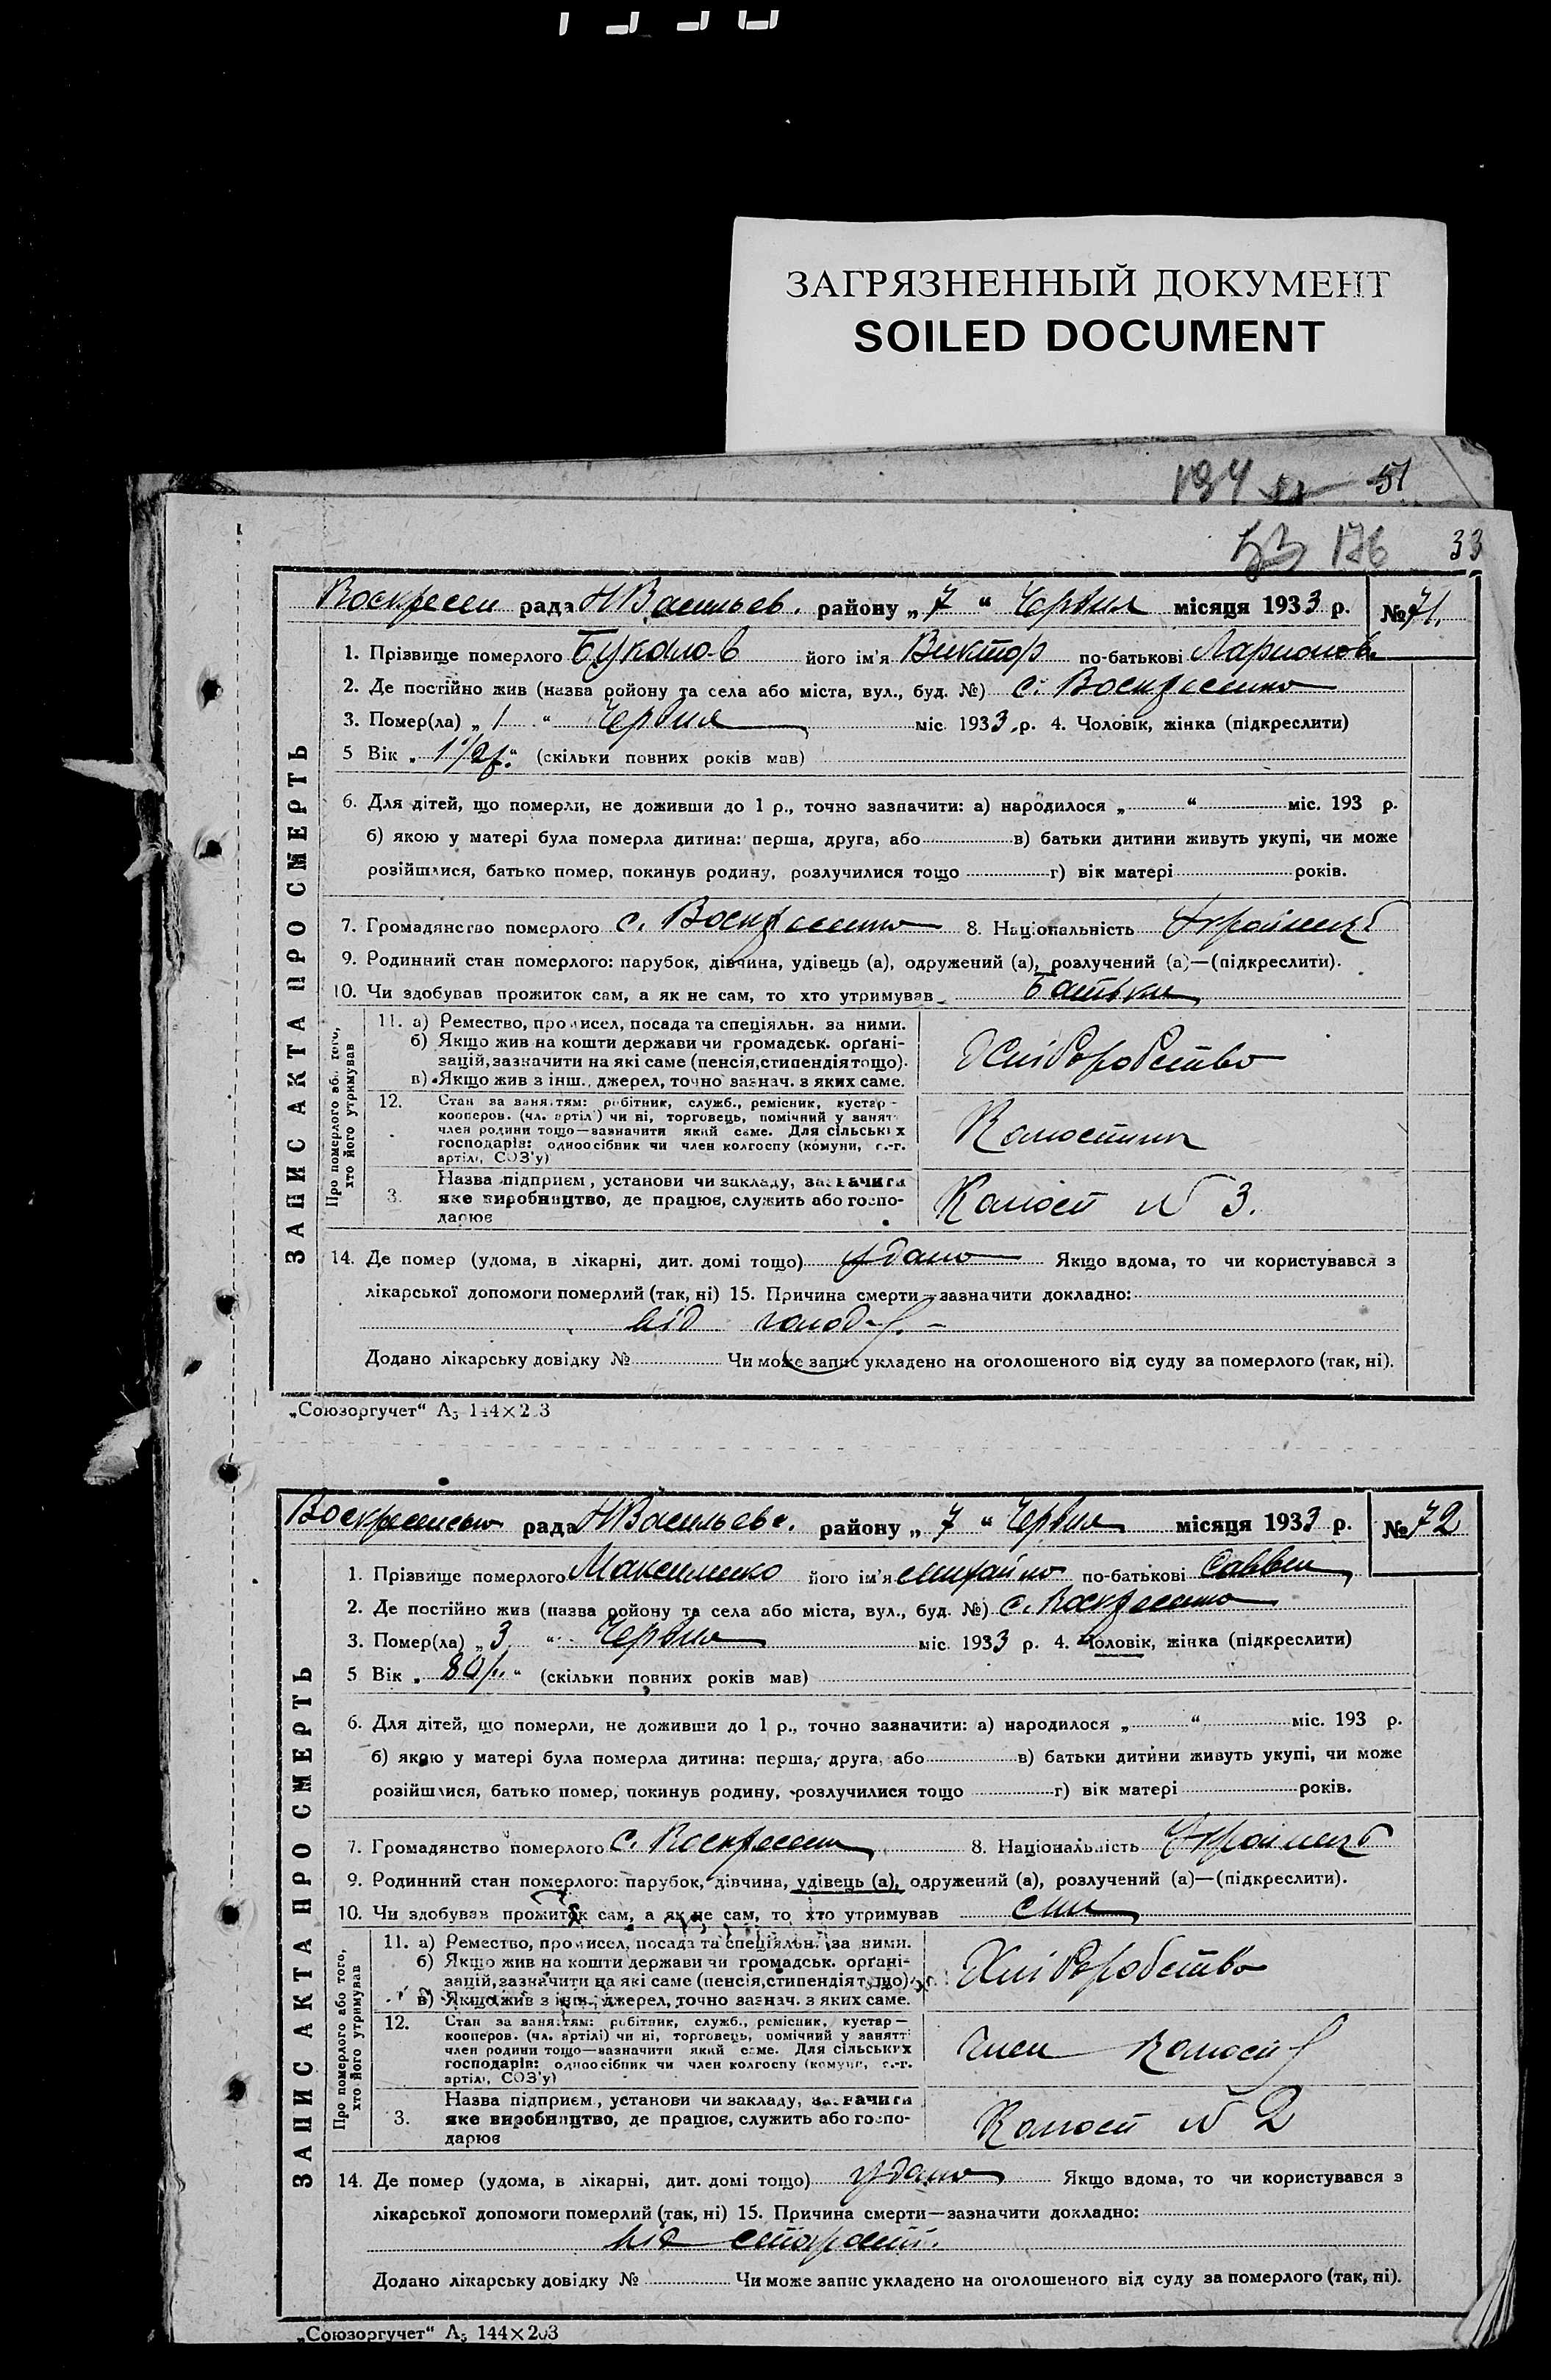 ЗАГРЯЗНЕННЫЙ ДОКУМЕНТ
SOILED DOCUMENT
194 51
53 176 33
Воскресен рада НВасильев. району „7 “ Червня місяця 1933 р. №71.
1. Прізвище померлого Букалов його ім'я Виктор по-батькові Ларионов
2. Де постійно жив (назва ройону та села або міста, вул., буд. №) с. Воскресенно
3. Помер(ла) „ 1 “ Червня міс. 1933 р. 4. Чоловік, жінка (підкреслити)
5 Вік „ 1 1/2 р. “ (скільки повних років мав)
6. Для дітей, що померли, не доживши до 1 р., точно зазначити: а) народилося „ “ міс. 193 р.
б) якою у матері була померла дитина: перша, друга, або в) батьки дитини живуть укупі, чи може
розійшлися, батько помер, покинув родину, розлучилися тощо г) вік матері років.
7. Громадянство померлого с. Воскресенно 8. Національність Українець
9. Родинний стан померлого: парубок, дівчина, удівець (а), одружений (а), розлучений (а)—(підкреслити).
10. Чи здобував прожиток сам, а як не сам, то хто утримував Батьки
ЗАПИС АКТА ПРО СМЕРТЬ
Про померлого або того, хто його утримував
11. а) Ремество, промисел, посада та спеціяльн. за ними.
б) Якщо жив на кошти держави чи громадськ. орґані-
зацій, зазначити на які саме (пенсія, стипендія тощо).
в) Якщо жив з інш. джерел, точно зазнач. з яких саме.
Хліборобство
12. Стан за занятям: робітник, служб., ремісник, кустар—
кооперов. (чл. артілі) чи ні, торговець, помічний у занятті
член родини тощо—зазначити який саме. Для сільських
господарів: одноосібник чи член колгоспу (комуни, с.-г.
артілі, СОЗ'у)
Колгоспник
3. Назва підприєм., установи чи закладу, зазначити
яке виробництво, де працює, служить або госпо-
дарює
Колгосп № 3.
14. Де помер (удома, в лікарні, дит. домі тощо) удома Якщо вдома, то чи користувався з
лікарської допомоги померлий (так, ні) 15. Причина смерти—зазначити докладно:
від голоду. –
Додано лікарську довідку № Чи може запис укладено на оголошеного від суду за померлого (так, ні).
„Союзоргучет“ А5 144×203
Воскресенсько рада НВасильевс. району „ 7 “ Червня місяця 1933 р. №72
1. Прізвище померлого Максименко його ім'я Михайло по-батькові Саввич
2. Де постійно жив (назва ройону та села або міста, вул., буд. №) с. Воскресенно
3. Помер(ла) „ 3 “ Червня міс. 1933 р. 4. Чоловік, жінка (підкреслити)
5 Вік „ 80 р. “ (скільки повних років мав)
6. Для дітей, що померли, не доживши до 1 р., точно зазначити: а) народилося „ “ міс. 193 р.
б) якою у матері була померла дитина: перша, друга, або в) батьки дитини живуть укупі, чи може
розійшлися, батько помер, покинув родину, розлучилися тощо г) вік матері років.
7. Громадянство померлого с. Воскресенн 8. Національність Українець
9. Родинний стан померлого: парубок, дівчина, удівець (а), одружений (а), розлучений (а)—(підкреслити).
10. Чи здобував прожиток сам, а як не сам, то хто утримував син
ЗАПИС АКТА ПРО СМЕРТЬ
Про померлого або того, хто його утримував
11. а) Ремество, промисел, посада та спеціяльн. за ними.
б) Якщо жив на кошти держави чи громадськ. орґані-
зацій, зазначити на які саме (пенсія, стипендія тощо).
в) Якщо жив з інш. джерел, точно зазнач. з яких саме.
Хліборобство
12. Стан за занятям: робітник, служб., ремісник, кустар—
кооперов. (чл. артілі) чи ні, торговець, помічний у занятті
член родини тощо—зазначити який саме. Для сільських
господарів: одноосібник чи член колгоспу (комуни, с.-г.
артілі, СОЗ'у)
член Колгоспу
3. Назва підприєм., установи чи закладу, зазначити
яке виробництво, де працює, служить або госпо-
дарює
Колгосп № 2
14. Де помер (удома, в лікарні, дит. домі тощо) удома Якщо вдома, то чи користувався з
лікарської допомоги померлий (так, ні) 15. Причина смерти—зазначити докладно:
від старости.
Додано лікарську довідку № Чи може запис укладено на оголошеного від суду за померлого (так, ні).
„Союзоргучет“ А5 144×203